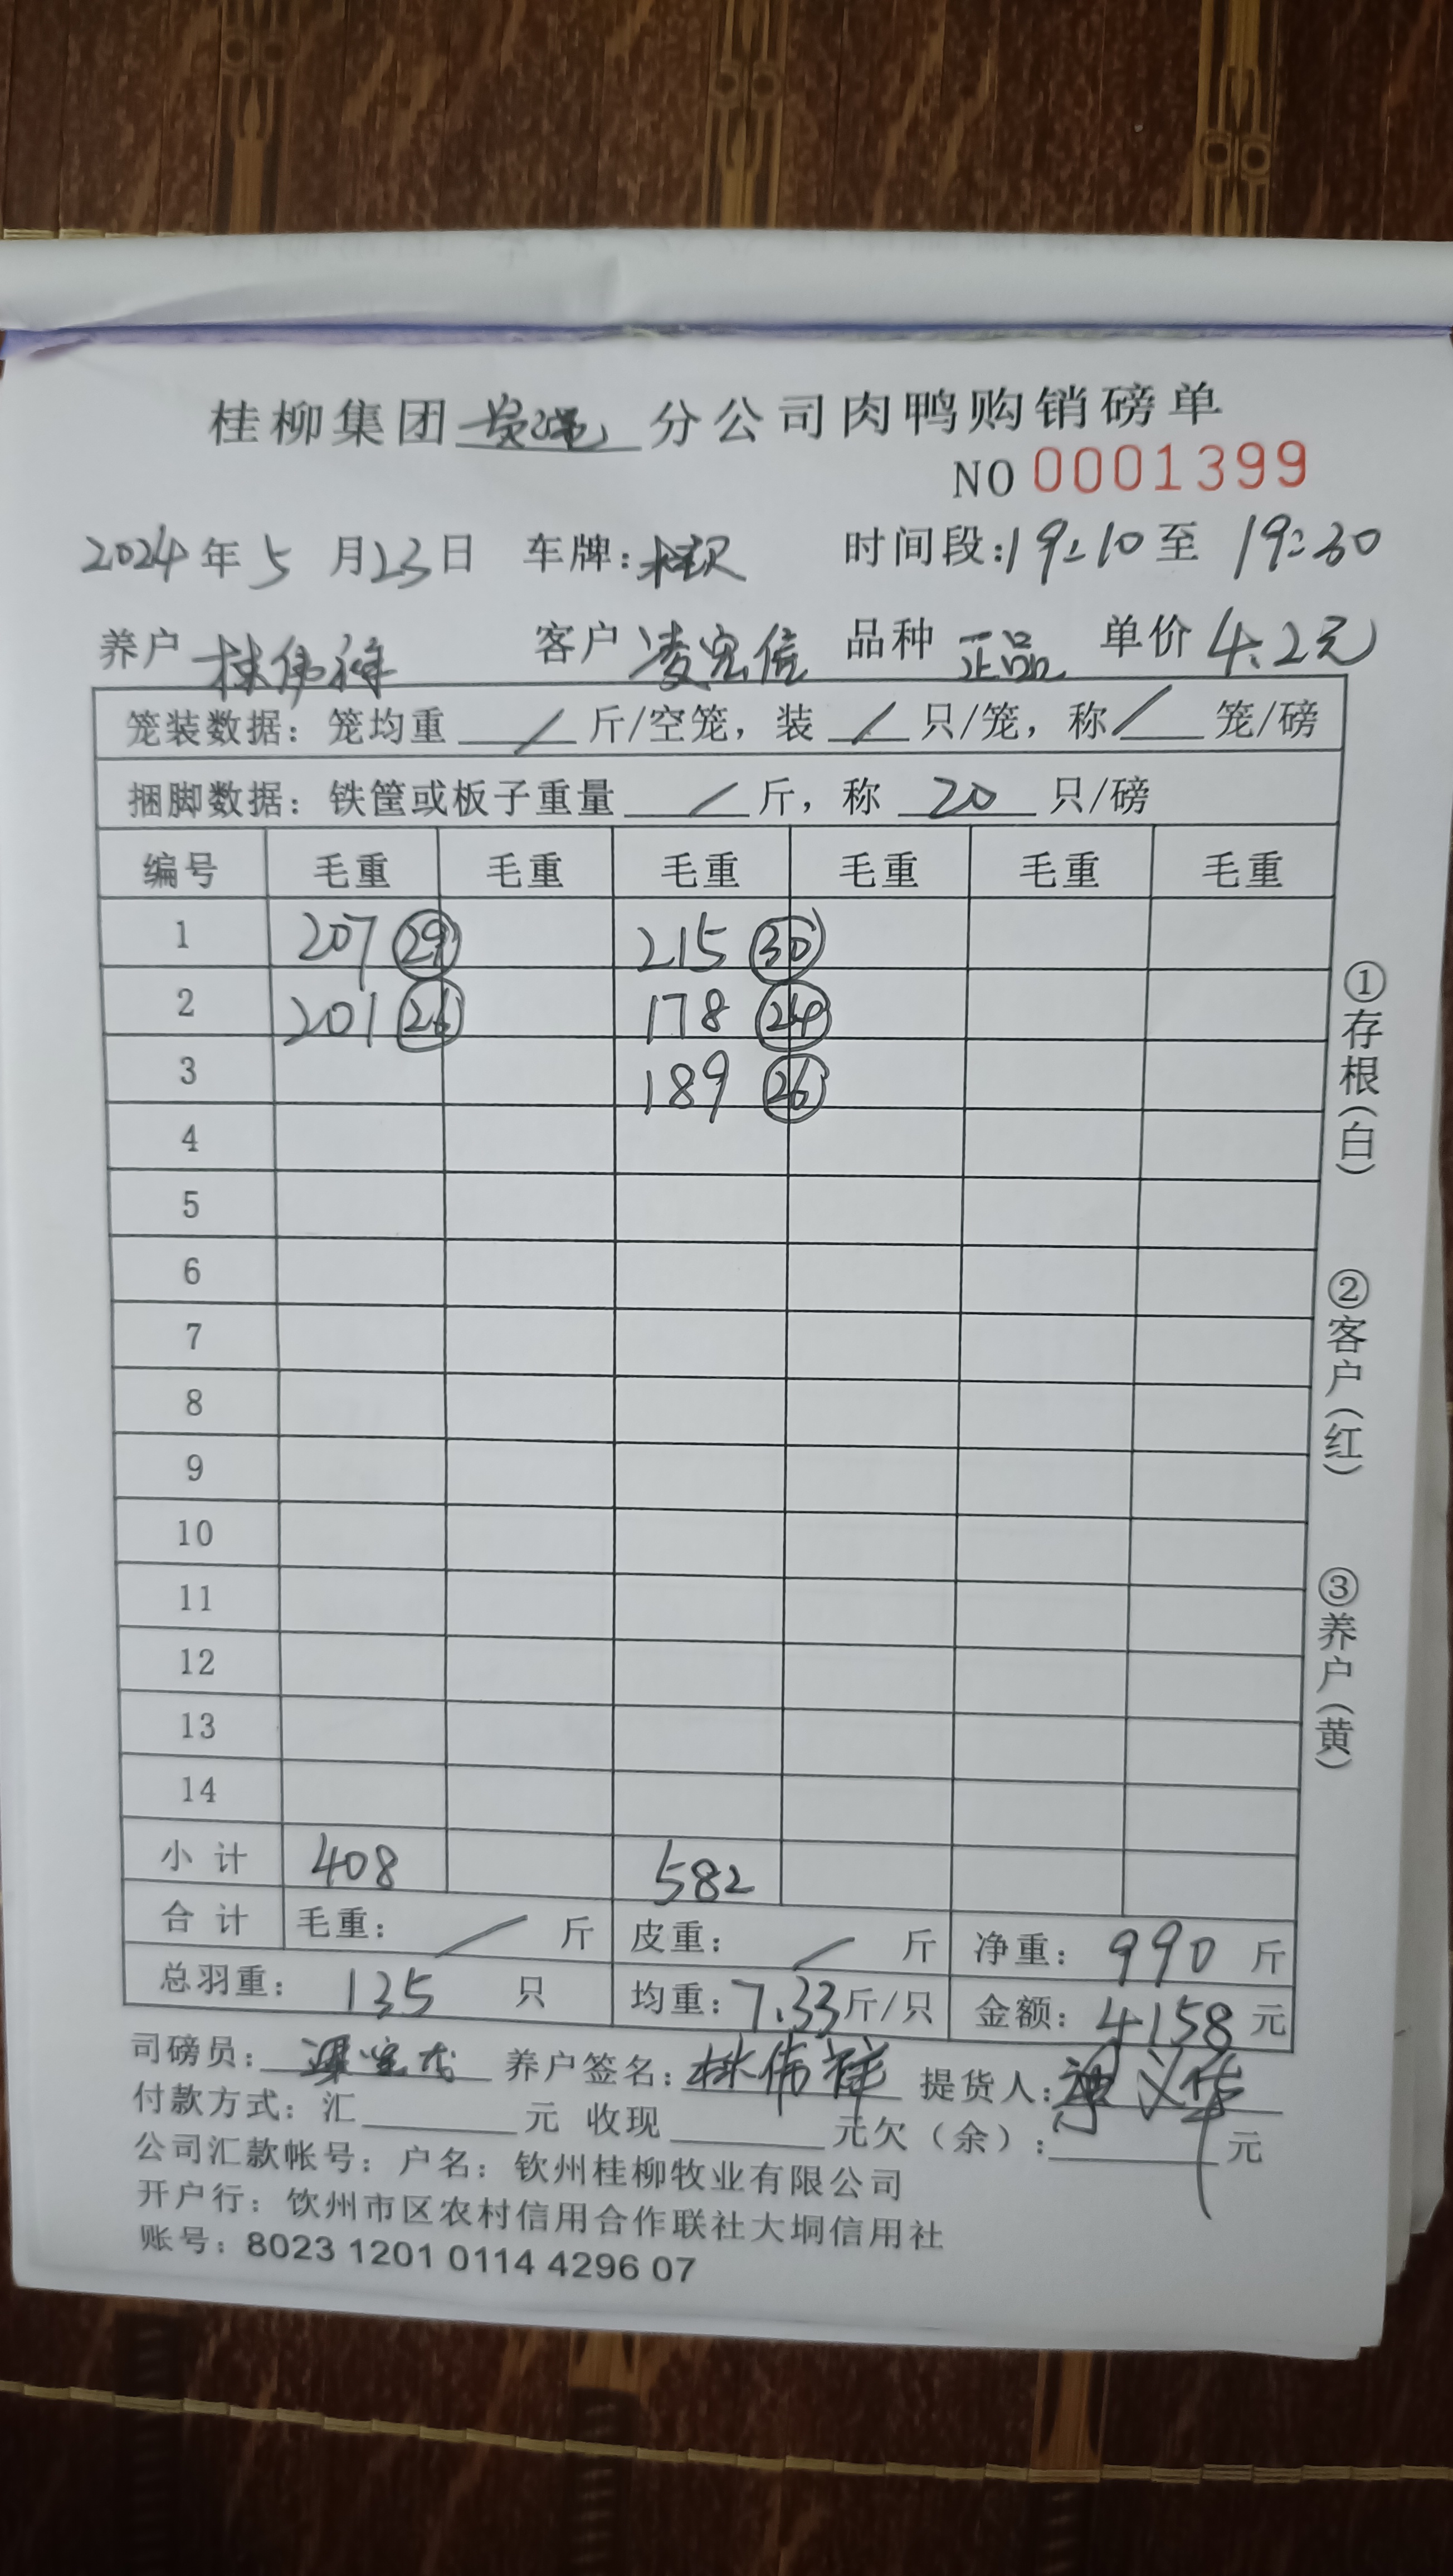 桂柳集团 分公司肉鸭购销磅单
NO 0001399
2024年5月23日 车牌: 时间段:19:10至19:30
养户 林伟祥 客户 凌宏信 品种 正品 单价 4.2元
笼装数据：笼均重 / 斤/空笼，装 / 只/笼，称 / 笼/磅
捆脚数据：铁筐或板子重量 / 斤，称 20 只/磅
编号 毛重 毛重 毛重 毛重 毛重 毛重
1 207 29 215 30
2 201 26 178 24
3 189 26
4
5
6
7
8
9
10
11
12
13
14
小计 408 582
合计 毛重： / 斤 皮重： / 斤 净重： 990 斤
总羽重： 135 只 均重：7.33斤/只 金额：4158元
司磅员： 养户签名：林伟祥 提货人：
付款方式：汇 元 收现 元欠（余）： 元
公司汇款帐号：户名：钦州桂柳牧业有限公司
开户行：饮州市区农村信用合作联社大垌信用社
账号：8023 1201 0114 4296 07
①存根（白）
②客户（红）
③养户（黄）